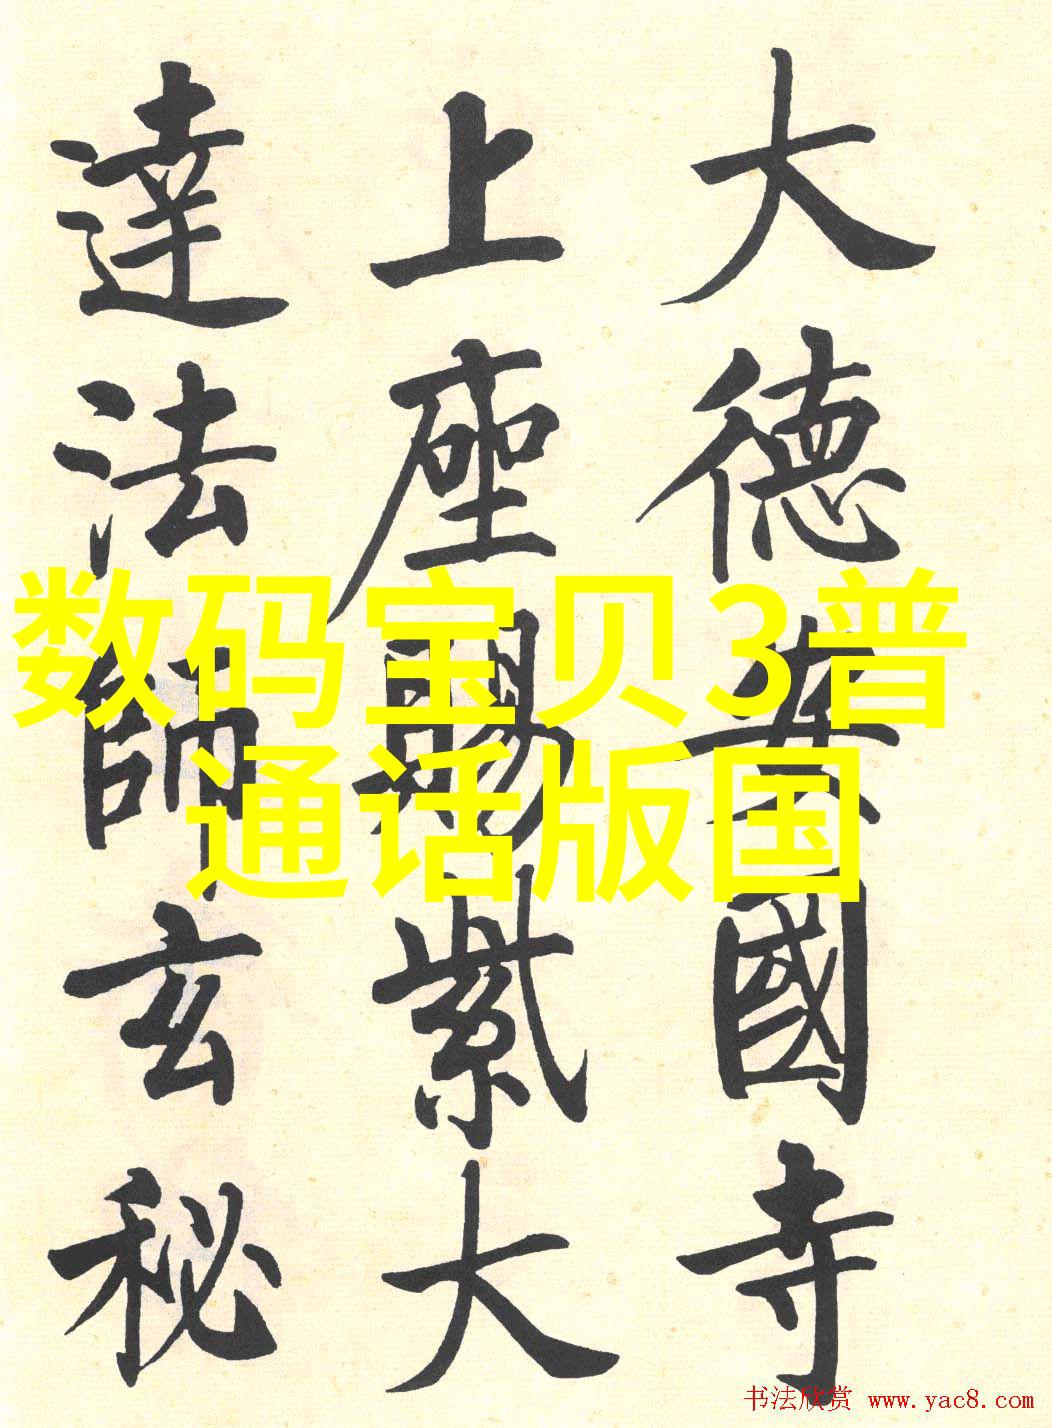 大德安國寺
上座賜紫大
達法師玄秘
数码宝贝3普
通话版国
书法欣赏 www.yac8.com